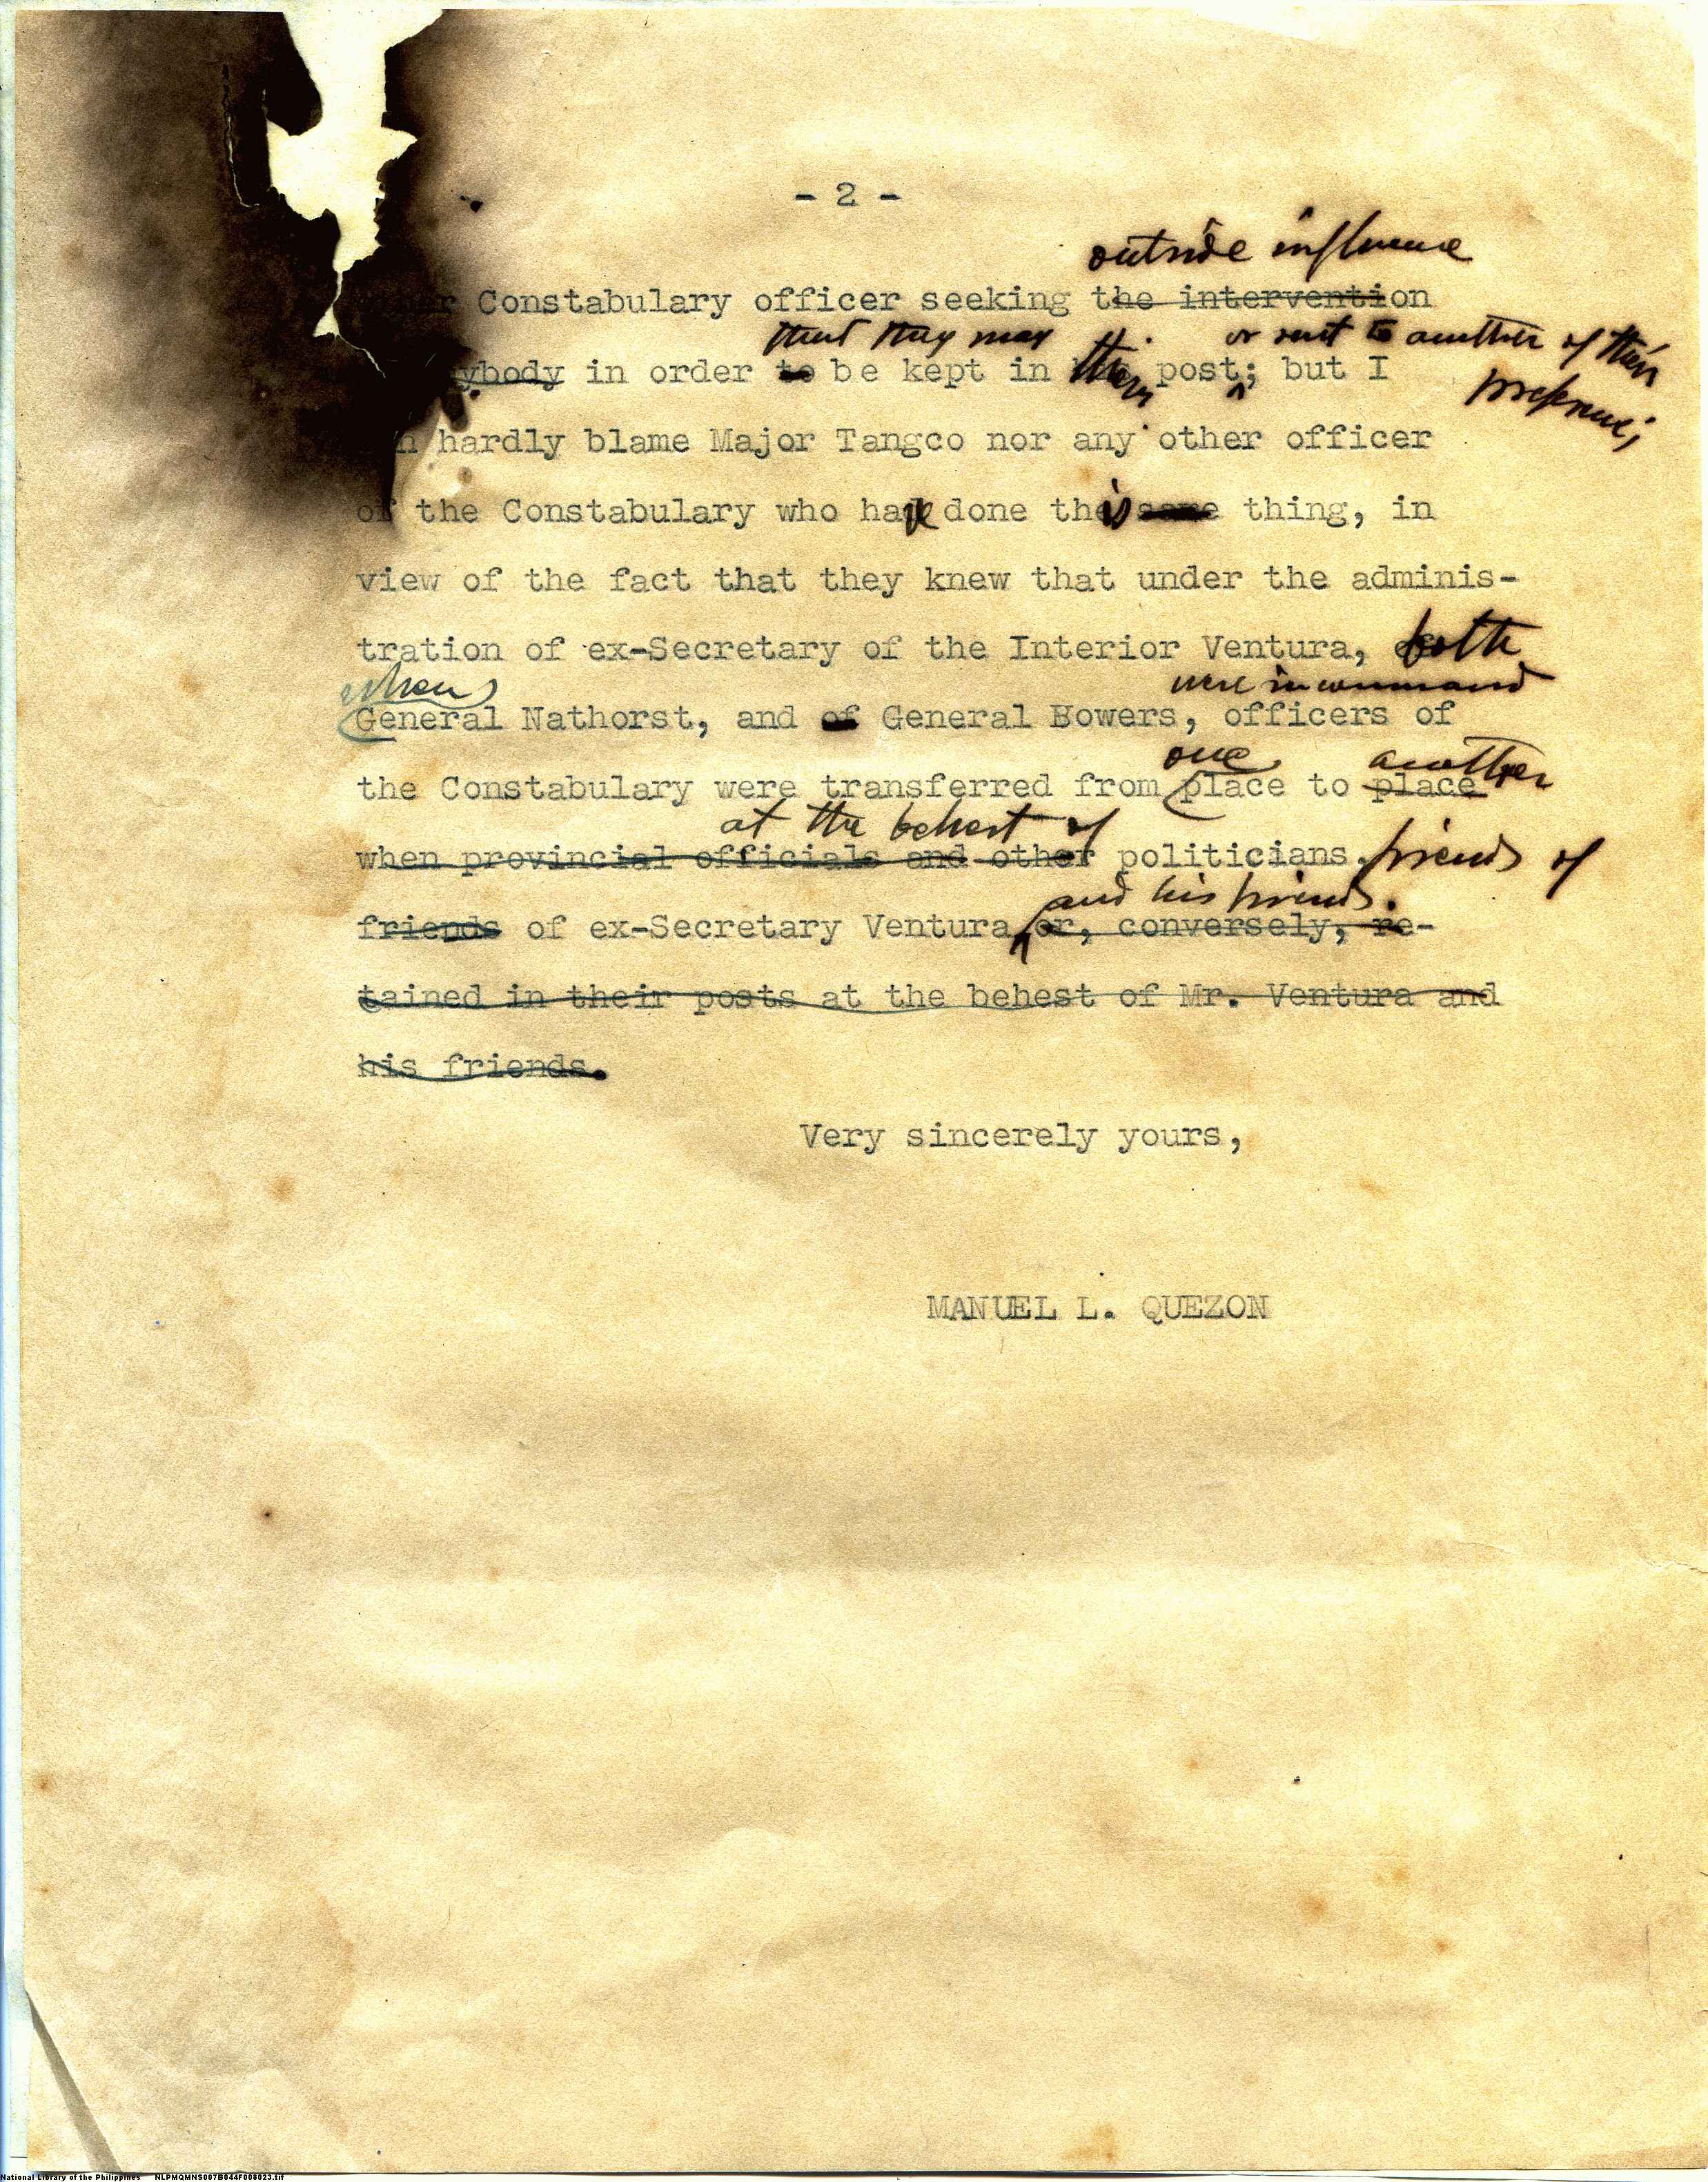 - 2 -
outside influence
Constabulary officer seeking the intervention
that they may or sent to another of their
ybody in order to be kept in their post; but I
preference;
hardly blame Major Tangco nor any other officer
of the Constabulary who have done this same thing, in
view of the fact that they knew that under the adminis-
tration of ex-Secretary of the Interior Ventura, both
when were in command
General Nathorst, and of General Bowers, officers of
one another
the Constabulary were transferred from place to place
at the behest of
when provincial officials and other politicians, friends of
and his friends.
friends of ex-Secretary Ventura, or, conversely, re-
tained in their posts at the behest of Mr. Ventura and
his friends.
Very sincerely yours,
MANUEL L. QUEZON
National Library of the Philippines NLPMQMNS007B044F008023.tif